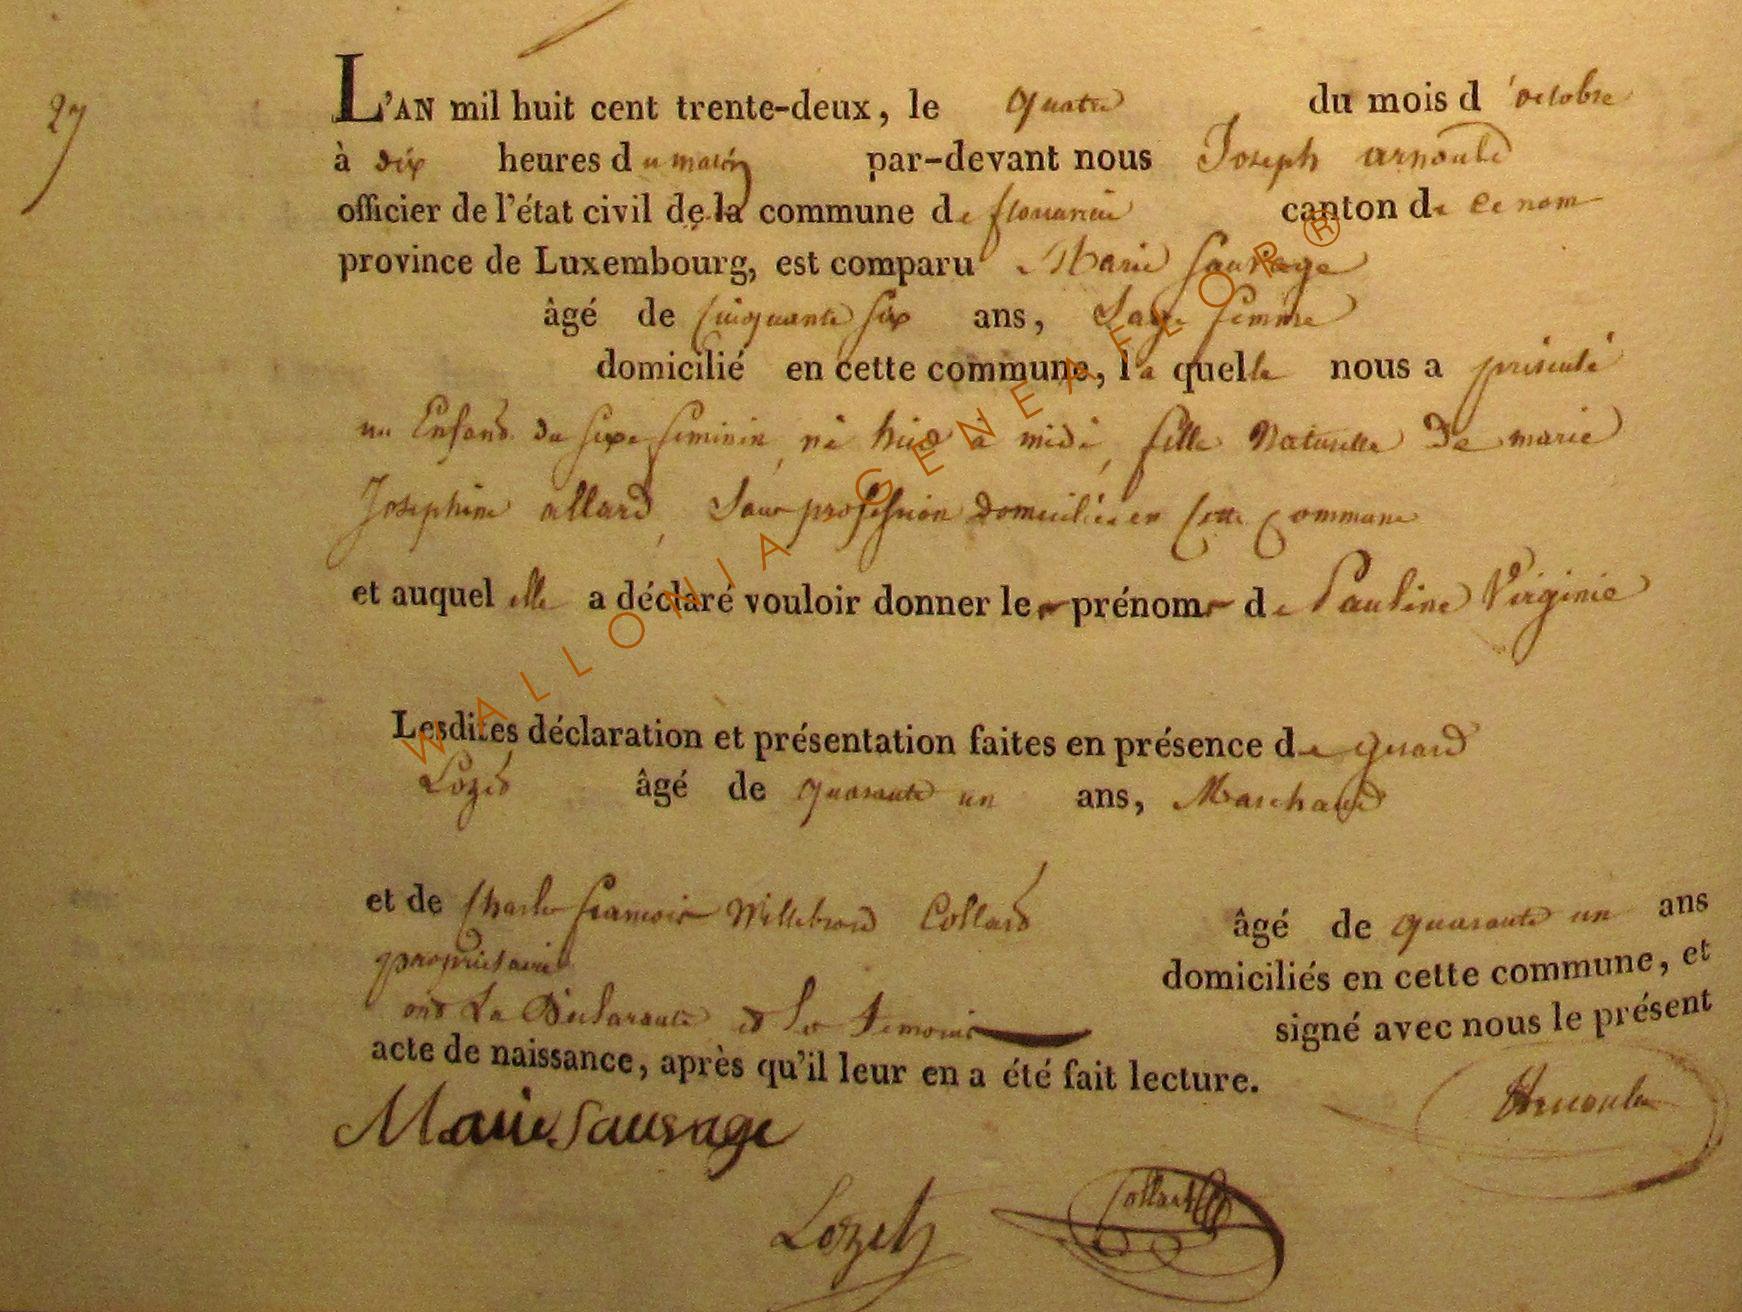 27
L'AN mil huit cent trente-deux, le quatre du mois d'octobre
à dix heures du matin par-devant nous Joseph arnould
officier de l'état civil de la commune de florenville canton de ce nom
province de Luxembourg, est comparu Marie Sauvage
âgé de Cinquante six ans, Sage femme
domicilié en cette commune, la quelle nous a présenté
un Enfant du sexe feminin, né hier a midi, fille Naturelle De marie
Josephine allard, Sans profession Domiciliée en Cette Commune
et auquel elle a déclaré vouloir donner les prénoms de Pauline Virginie
Lesdites déclaration et présentation faites en présence de gerard
Lozet âgé de quarante un ans, Marchand
et de Charles françois Willebrord Collard âgé de quarante un ans
propriétaire domiciliés en cette commune, et
ont La Déclarante et les temoins signé avec nous le présent
acte de naissance, après qu'il leur en a été fait lecture.
Marie Sauvage Arnould
Lozet Collard
WALLONIA GENEAFEOR ®